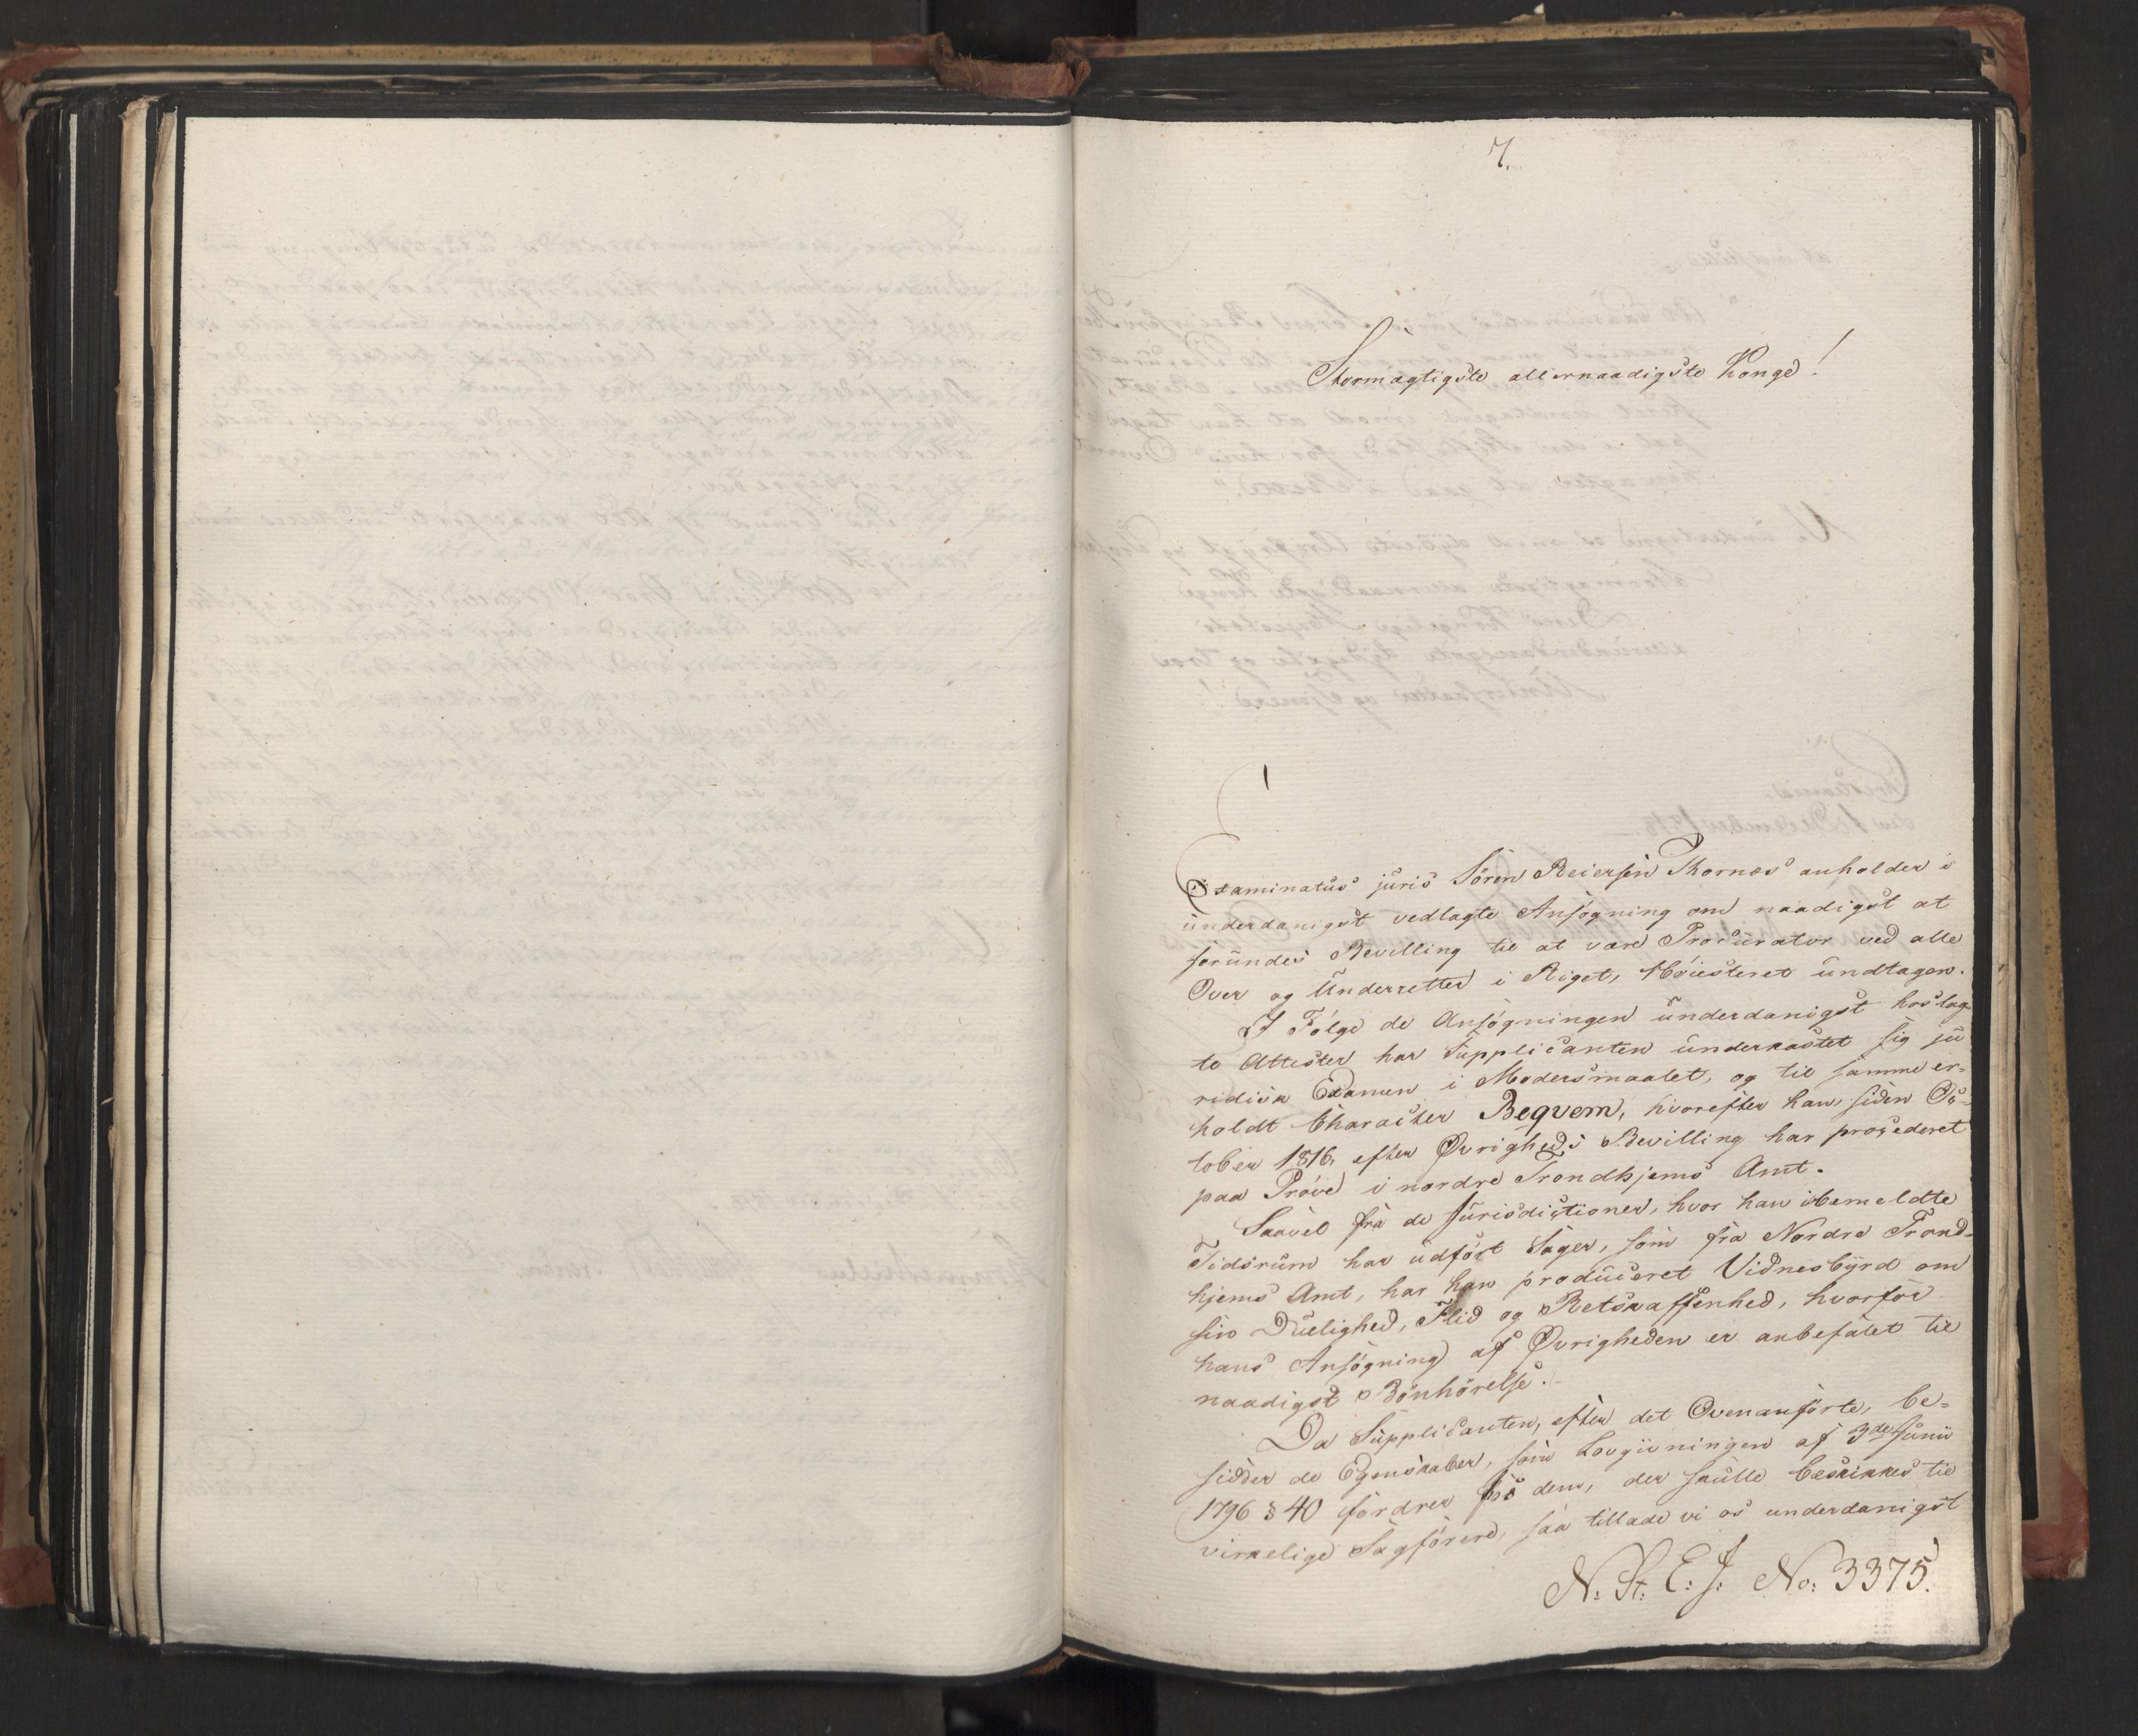 7.
Stormægtigste allernaadigste Konge!
Examinatus juris Sören Reiersen Thornæs anholder i
underdanigst vedlagte Ansögning om naadigst at
forundes Bevilling til at være Procurator ved alle
Over og Underretter i Riget, Höiesteret undtagen.
I Fölge de Ansögningen underdanigst hoslag-
te Attester har Supplicanten underkastet sig ju
ridisk Examen i Modersmaalet, og til samme er-
holdt Character Beqvem, hvorefter han, siden Oc-
tober 1816, efter Øvrigheds Bevilling har procederet
paa Pröve i nordre Trondhjems Amt.
Saavel fra de Jurisdictioner, hvor han i bemeldte
Tidsrum har udfört Sager, som fra Nordre Trond-
hjems Amt, har han produceret Vidnesbyrd om
sin Duelighed, Flid og Retskaffenhed, hvorfor
hans Ansögning af Øvrigheden er anbefalet til
naadigst Bönhörelse.
Da Supplicanten, efter det Ovenanförte, be-
sidder de Egenskaber, som Lovgivningen af 3de Junii
1796 § 40 fordrer hos dem, der skulle beskikkes til
virkelige Sagförere, saa tillade vi os underdanigst
N: St: E: J: No: 3375.